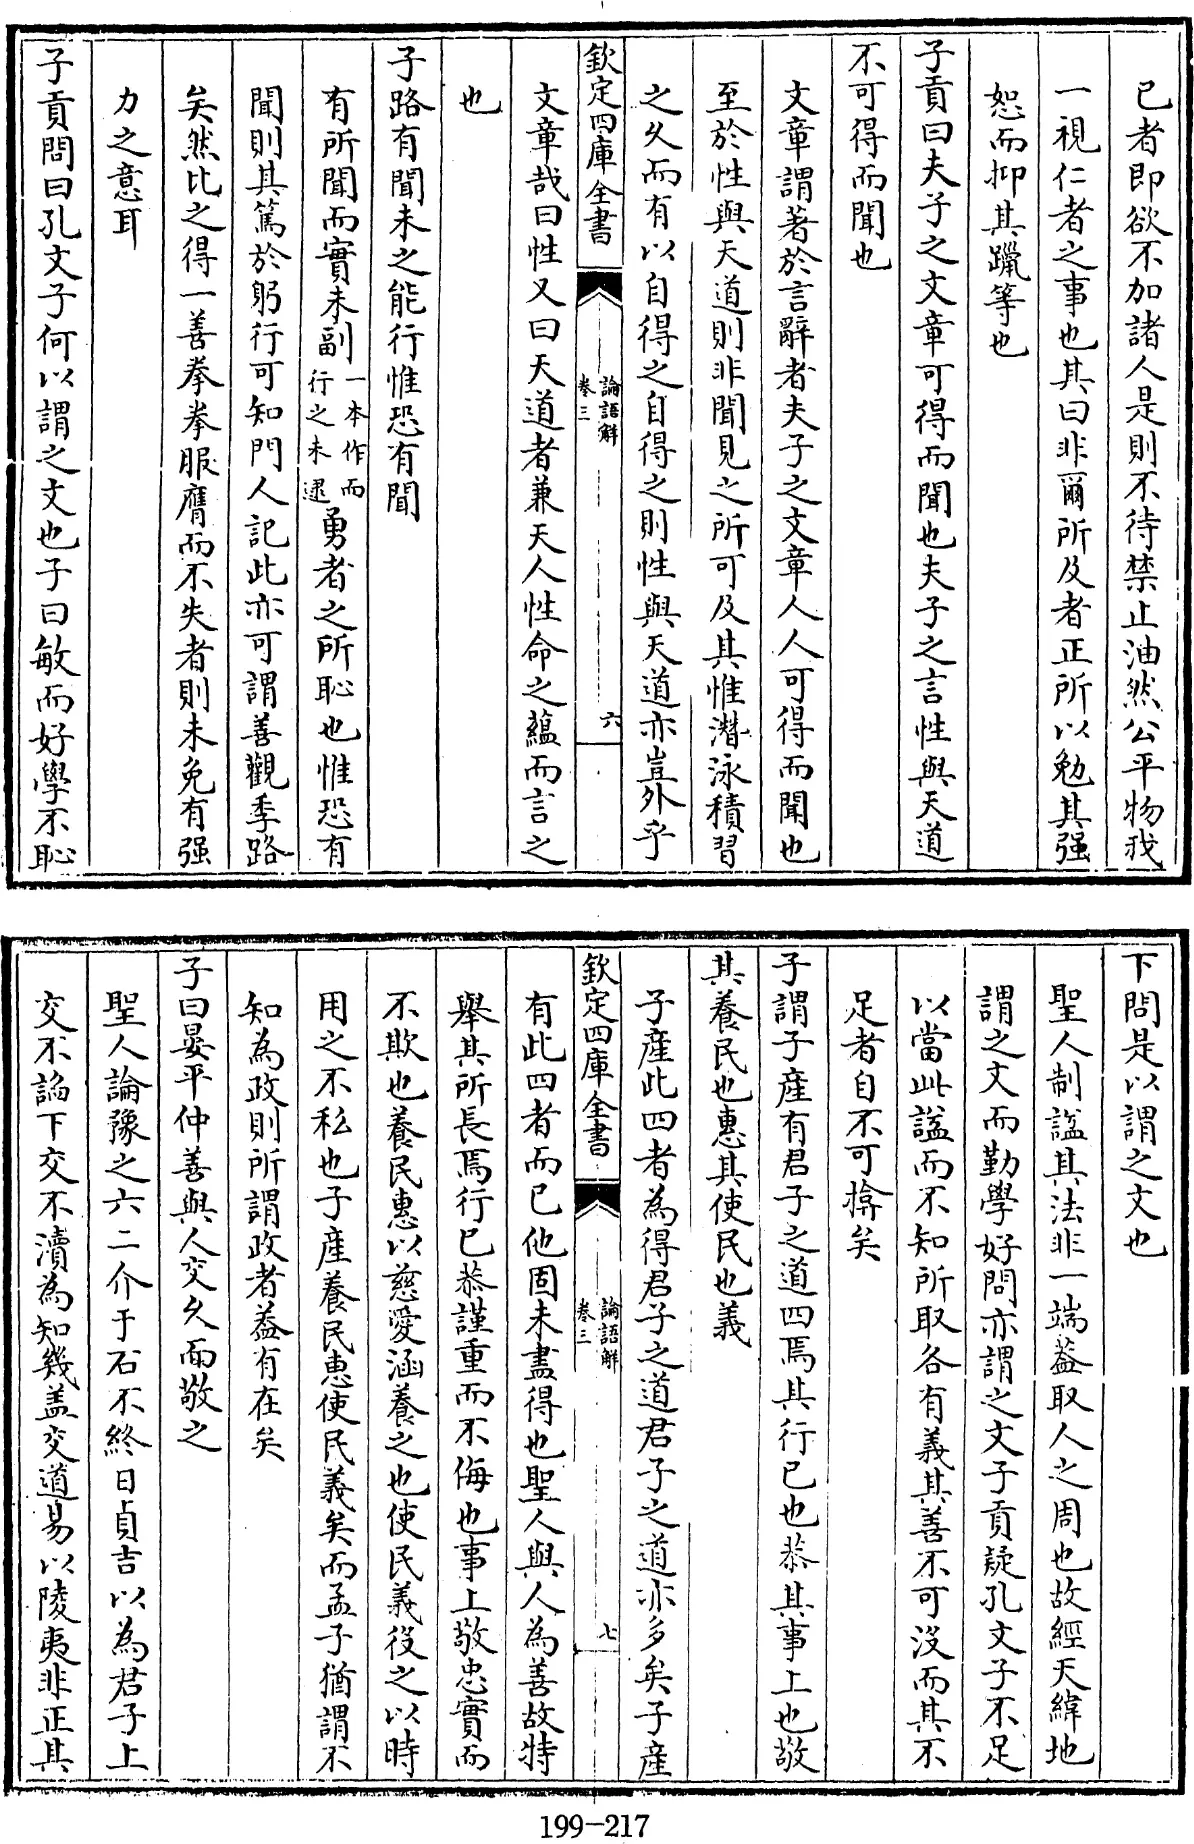 己者即欲不加諸人是則不待禁止油然公平物我
一視仁者之事也其曰非爾所及者正所以勉其强
恕而抑其躐等也
子貢曰夫子之文章可得而聞也夫子之言性與天道
不可得而聞也
文章謂著於言辭者夫子之文章人人可得而聞也
至於性與天道則非聞見之所可及其惟潛泳積習
之久而有以自得之自得之則性與天道亦豈外乎
欽定四庫全書
論語解
卷三
六
文章哉曰性又曰天道者兼天人性命之蘊而言之
也
子路有聞未之能行惟恐有聞
有所聞而實未副一本作而行之未逮勇者之所恥也惟恐有
聞則其篤於躬行可知門人記此亦可謂善觀季路
矣然比之得一善拳拳服膺而不失者則未免有强
力之意耳
子貢問曰孔文子何以謂之文也子曰敏而好學不恥
下問是以謂之文也
聖人制諡其法非一端葢取人之周也故經天緯地
謂之文而勤學好問亦謂之文子貢疑孔文子不足
以當此諡而不知所取各有義其善不可沒而其不
足者自不可揜矣
子謂子產有君子之道四焉其行己也恭其事上也敬
其養民也惠其使民也義
子產此四者為得君子之道君子之道亦多矣子產
欽定四庫全書
論語解
卷三
七
有此四者而已他固未盡得也聖人與人為善故特
舉其所長焉行己恭謹重而不侮也事上敬忠實而
不欺也養民惠以慈愛涵養之也使民義役之以時
用之不私也子產養民惠使民義矣而孟子猶謂不
知為政則所謂政者葢有在矣
子曰晏平仲善與人交久而敬之
聖人論豫之六二介于石不終日貞吉以為君子上
交不諂下交不瀆為知幾盖交道易以陵夷非正其
199-217